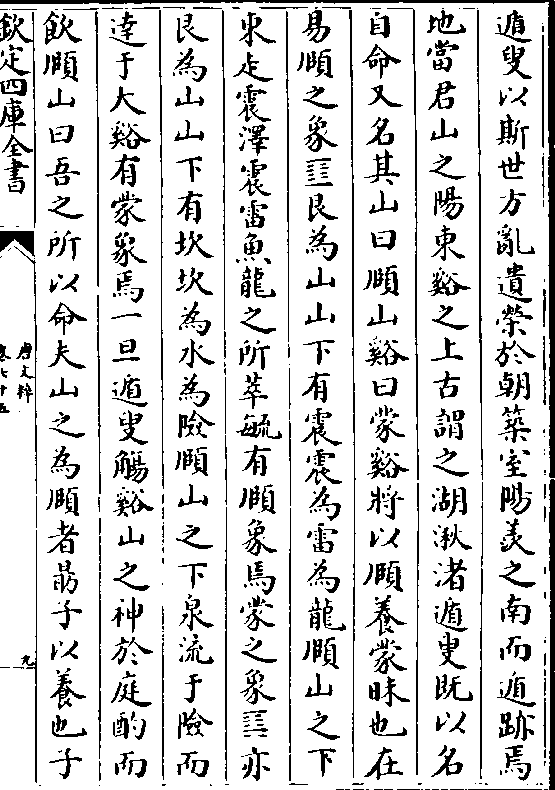 遁叟以斯世方亂遺榮於朝築室陽羨之南而遁跡焉
地當君山之陽東谿之上古謂之湖㳜渚遁叟既以名
自命又名其山曰頤山谿曰蒙谿將以頤養蒙昧也在
易頤之象䷚艮為山山下有震震為雷為龍頤山之下
東走震澤震雷魚龍之所萃毓有頤象焉蒙之象䷃亦
艮為山山下有坎坎為水為險頤山之下泉流于險而
達于大谿有蒙象焉一旦遁叟觴谿山之神於庭酌而
飲頤山曰吾之所以命夫山之為頤者勗子以養也子
欽定四庫全書
唐文粹
九